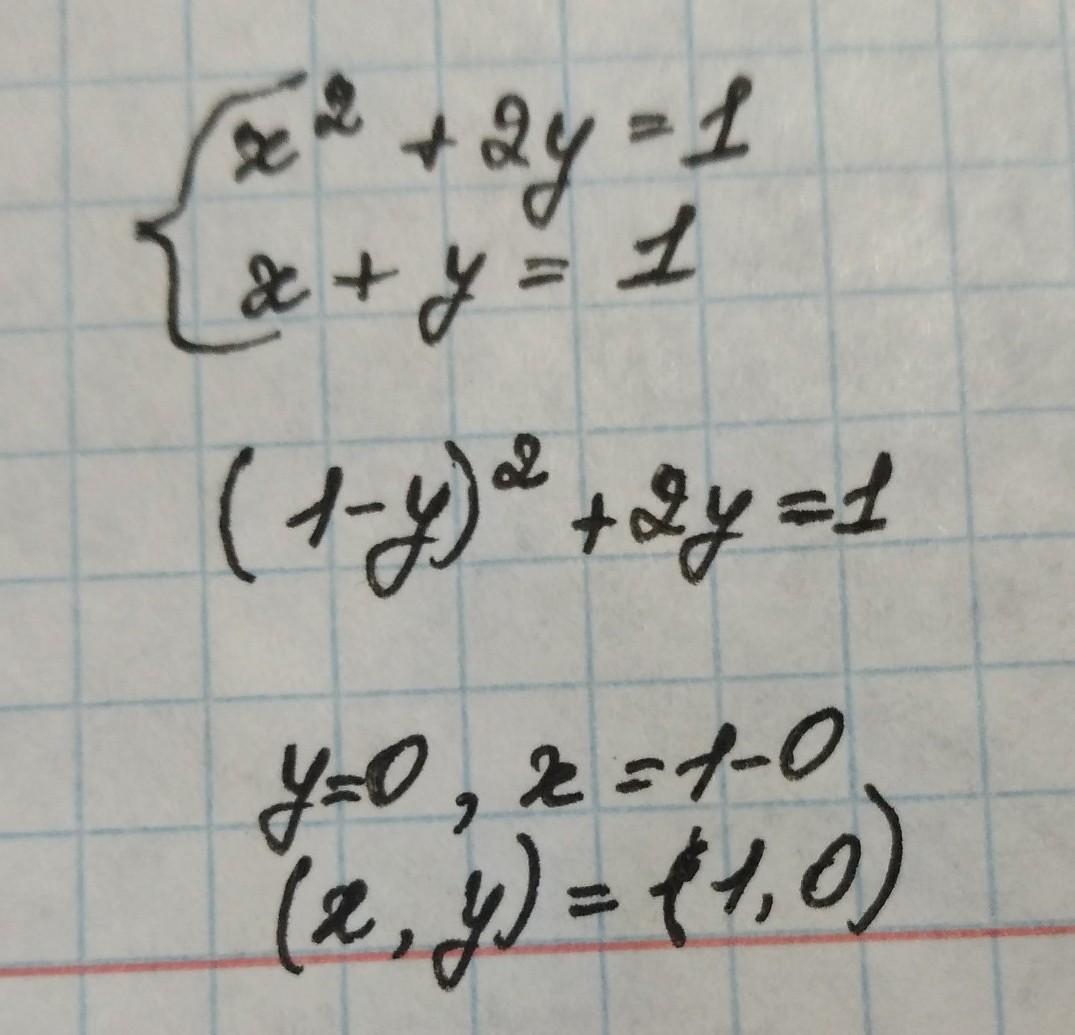 x² + 2y = 1
x + y = 1
(1-y)² + 2y = 1
y=0, x = 1-0
(x, y) = (1, 0)